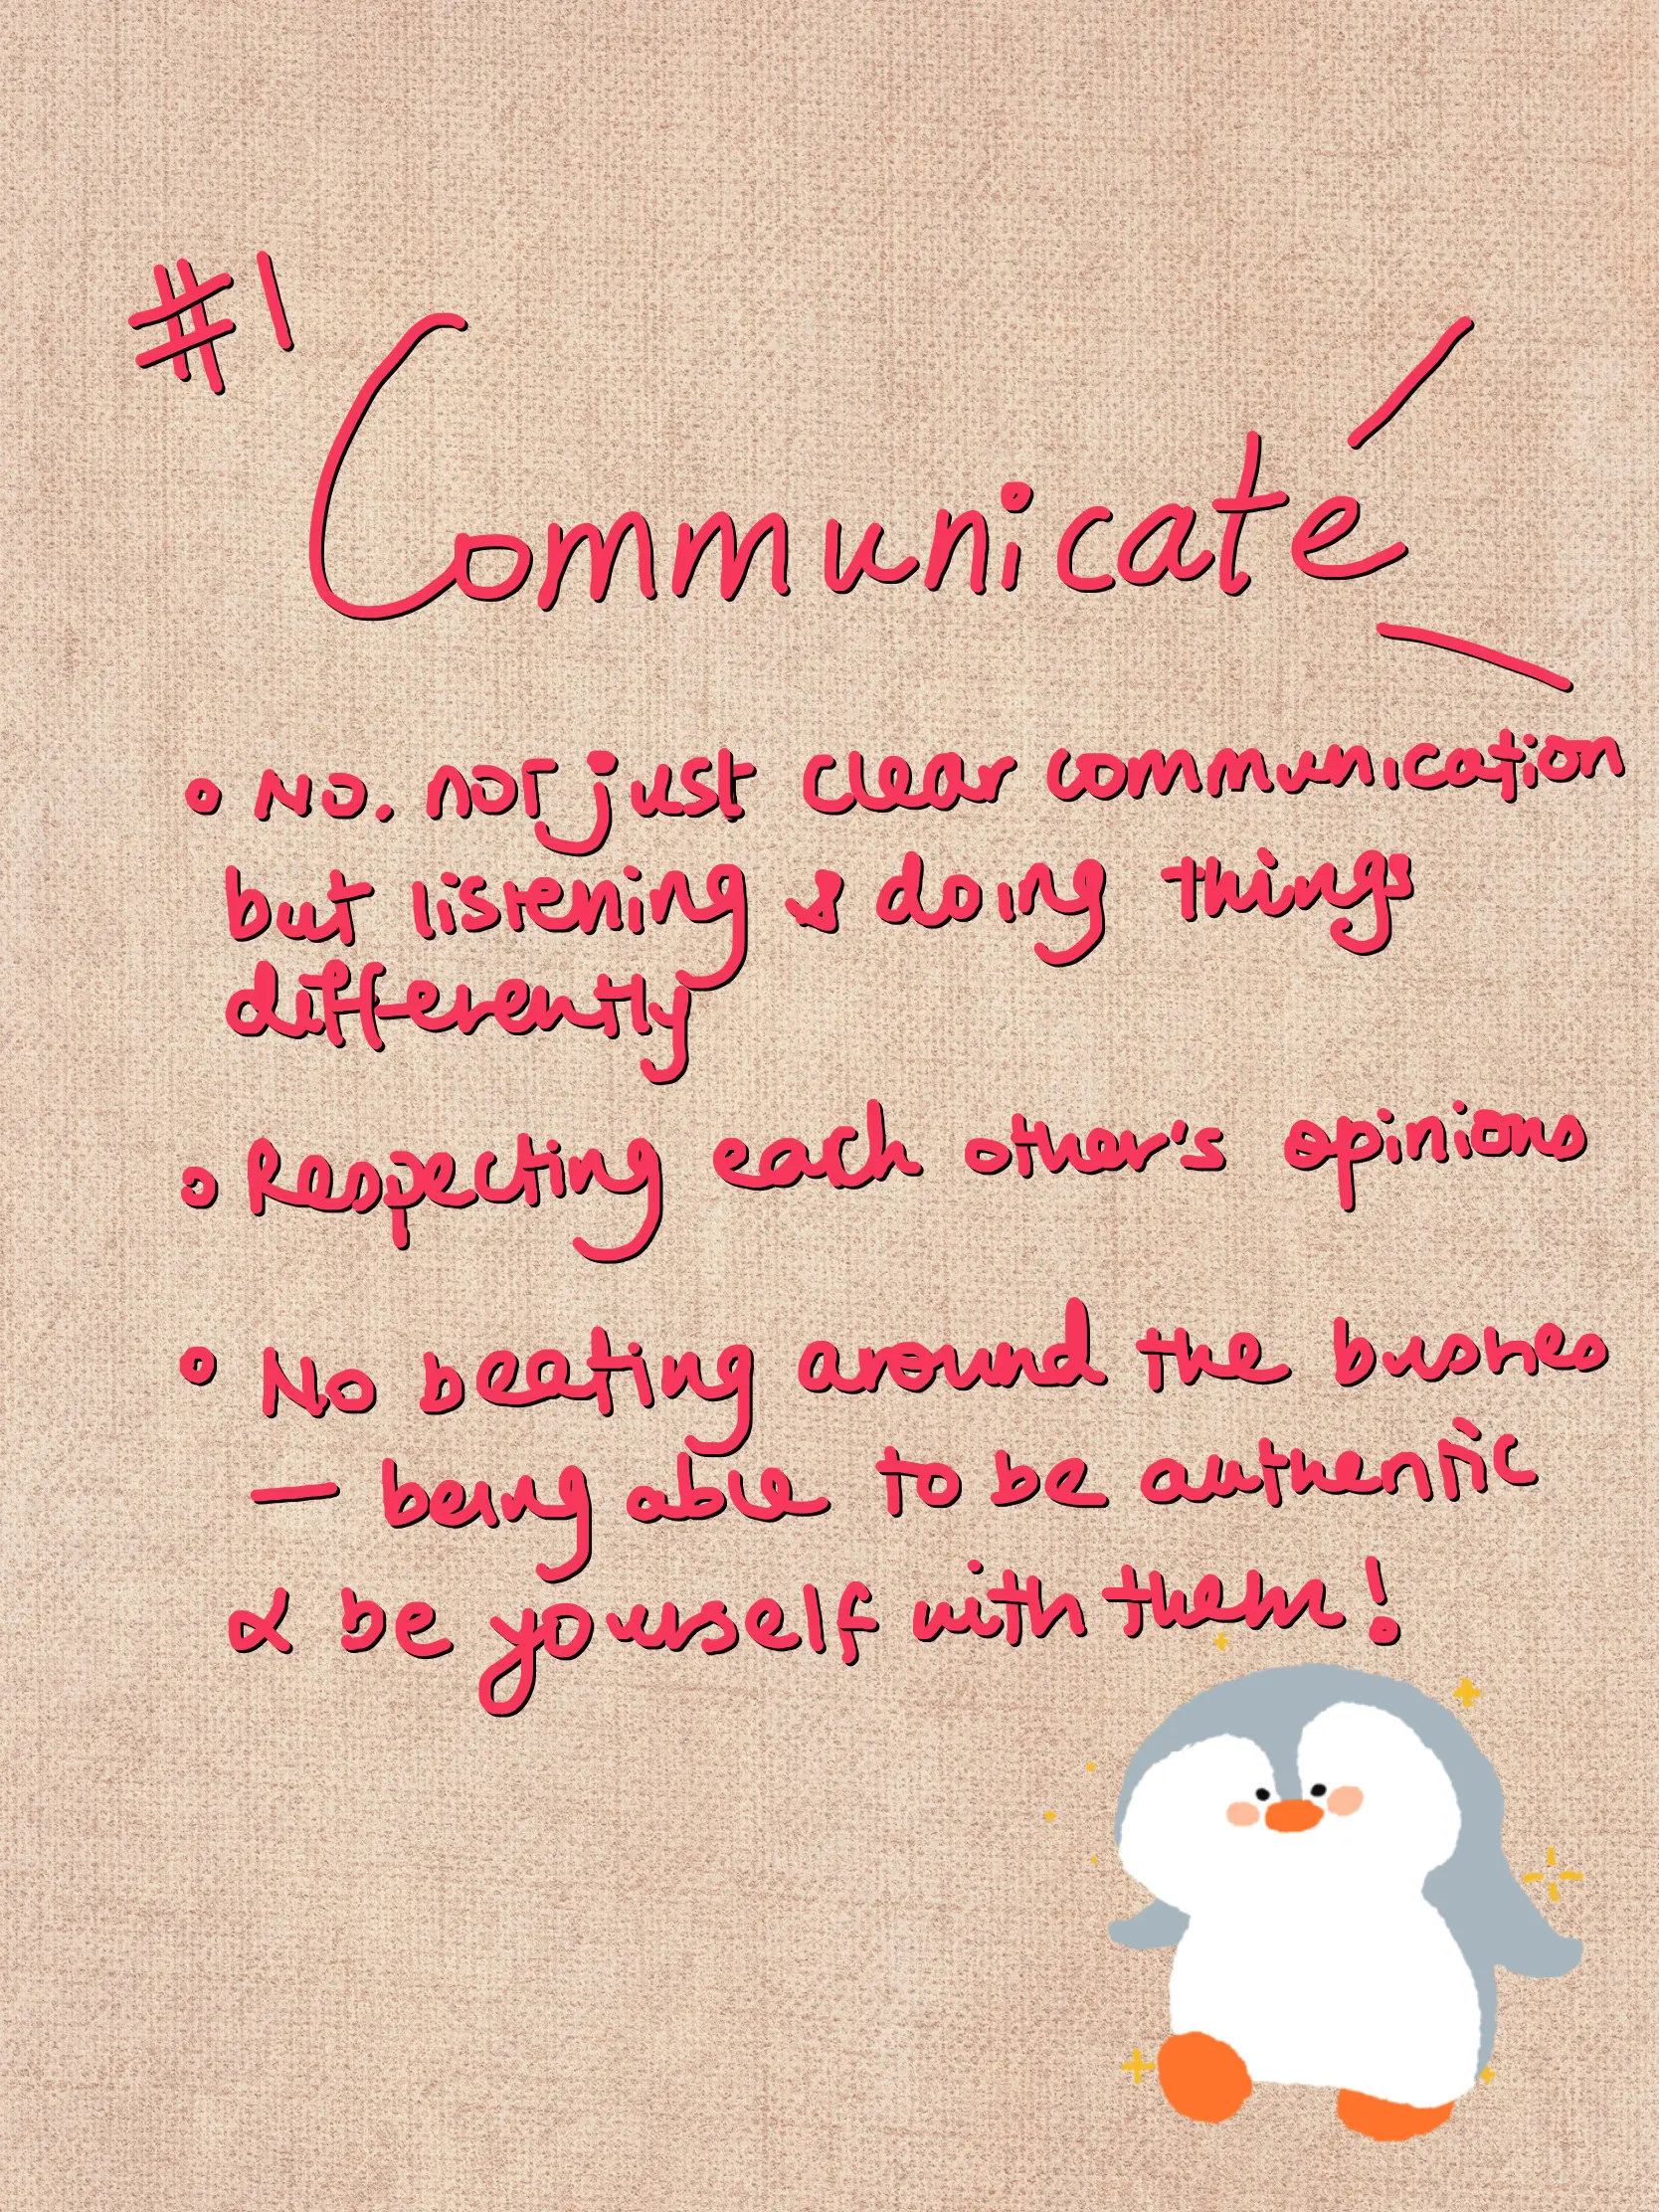 #1
Communicate
• No. not just clear communication
but listening & doing things
differently
• Respecting each other's opinions
• No beating around the bushes
— being able to be authentic
& be yourself with them!